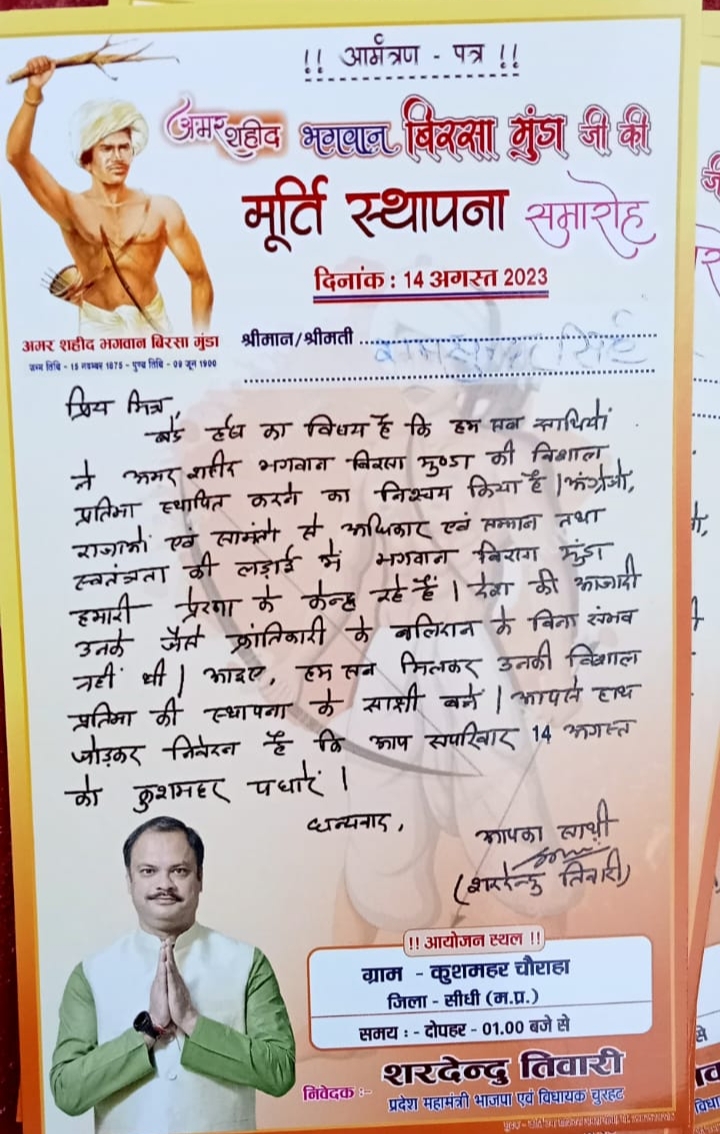 !! आमंत्रण - पत्र !!
अमर शहीद भगवान बिरसा मुंडा जी की
मूर्ति स्थापना समारोह
दिनांक : 14 अगस्त 2023
अमर शहीद भगवान बिरसा मुंडा
जन्म तिथि - 15 नवम्बर 1875 - पुण्य तिथि - 09 जून 1900
श्रीमान/श्रीमती सिंह
प्रिय मित्र,
बड़े हर्ष का विषय है कि हम सब साथियों
ने अमर शहीद भगवान बिरसा मुण्डा की विशाल
प्रतिमा स्थापित करने का निश्चय किया है। अंग्रेजों,
राजाओं एवं सामंतों से अधिकार एवं सम्मान तथा
स्वतंत्रता की लड़ाई में भगवान बिरसा मुंडा
हमारी प्रेरणा के केन्द्र रहे हैं। देश की आजादी
उनके जैसे क्रांतिकारी के बलिदान के बिना संभव
नहीं थी। आइए, हम सब मिलकर उनकी विशाल
प्रतिमा की स्थापना के साक्षी बनें। आपसे हाथ
जोड़कर निवेदन है कि आप सपरिवार 14 अगस्त
को कुशमहर पधारें।
धन्यवाद,
आपका साथी
(शरदेन्दु तिवारी)
!! आयोजन स्थल !!
ग्राम - कुशमहर चौराहा
जिला - सीधी (म.प्र.)
समय : - दोपहर - 01.00 बजे से
निवेदक :- शरदेन्दु तिवारी
प्रदेश महामंत्री भाजपा एवं विधायक चुरहट